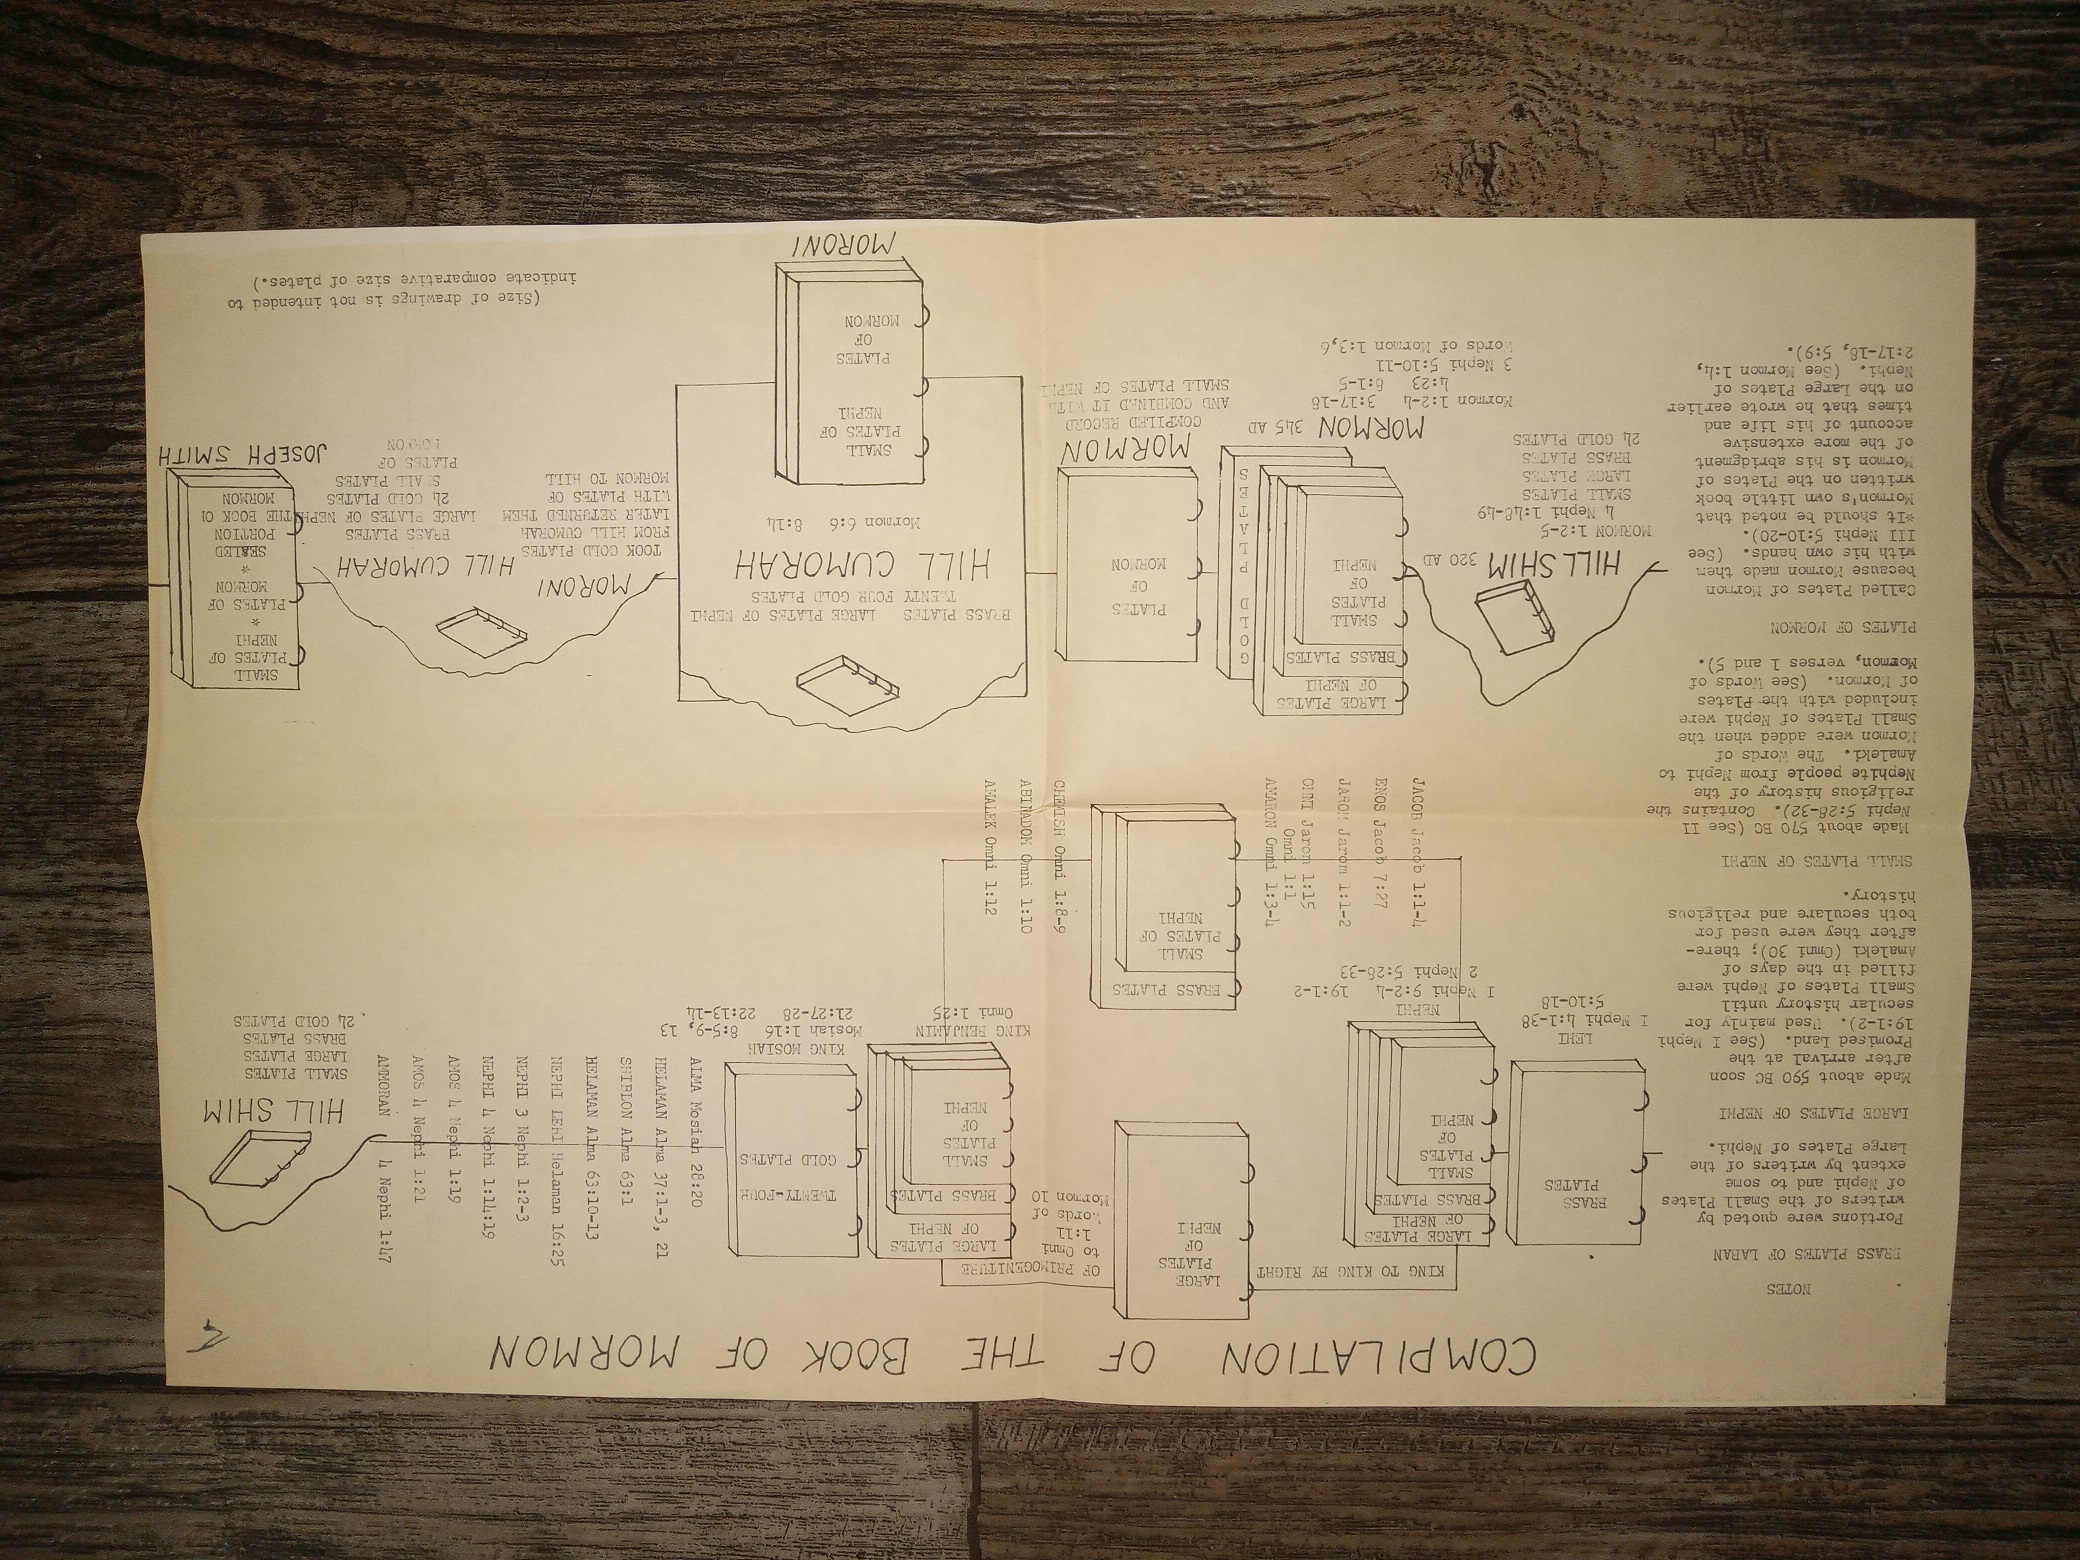 COMPILATION OF THE BOOK OF MORMON
NOTES
BRASS PLATES OF LABAN
Portions were quoted by
writers of the Small Plates
of Nephi and to some
extent by writers of the
Large Plates of Nephi.
LARGE PLATES OF NEPHI
Made about 590 BC soon
after arrival at the
Promised Land. (See I Nephi
19:1-2). Used mainly for
secular history until
Small Plates of Nephi were
filled in the days of
Amaleki (Omni 30); there-
after they were used for
both seculare and religious
history.
SMALL PLATES OF NEPHI
Made about 570 BC (See II
Nephi 5:28-32). Contains the
religious history of the
Nephite people from Nephi to
Amaleki. The Words of
Mormon were added when the
Small Plates of Nephi were
included with the Plates
of Mormon. (See Words of
Mormon, verses 1 and 5).
PLATES OF MORMON
Called Plates of Mormon
because Mormon made then
with his own hands. (See
III Nephi 5:10-20).
*It should be noted that
Mormon's own little book
written on the Plates of
Mormon is his abridgment
of the more extensive
account of his life and
times that he wrote earlier
on the Large Plates of
Nephi. (See Mormon 1:4,
2:17-18, 5:9).
BRASS
PLATES
LEHI
I Nephi 4:1-38
5:10-18
LARGE PLATES
OF NEPHI
BRASS PLATES
SMALL
PLATES
OF
NEPHI
NEPHI
I Nephi 9:2-4 19:1-2
2 Nephi 5:28-33
KING TO KING BY RIGHT
LARGE
PLATES
OF
NEPHI
OF PRIMOGENITURE
to Omni
1:11
Words of
Mormon 10
JACOB Jacob 1:1-4
ENOS Jacob 7:27
JAROM Jarom 1:1-2
OMNI Jarom 1:15
Omni 1:1
AMARON Omni 1:3-4
BRASS PLATES
SMALL
PLATES OF
NEPHI
CHEMISH Omni 1:8-9
ABINADOM Omni 1:10
AMALEK Omni 1:12
LARGE PLATES
OF NEPHI
BRASS PLATES
SMALL
PLATES
OF
NEPHI
KING BENJAMIN
Omni 1:25
TWENTY-FOUR
GOLD PLATES
KING MOSIAH
Mosiah 1:16 8:5-9, 13
21:27-28 22:13-14
ALMA Mosiah 28:20
HELAMAN Alma 37:1-3, 21
SHIBLON Alma 63:1
HELAMAN Alma 63:10-13
NEPHI LEHI Helaman 16:25
NEPHI 3 Nephi 1:2-3
NEPHI 4 Nephi 1:14:19
AMOS 4 Nephi 1:19
AMOS 4 Nephi 1:21
AMMORAN 4 Nephi 1:47
HILL SHIM
SMALL PLATES
LARGE PLATES
BRASS PLATES
24 GOLD PLATES
HILL SHIM 320 AD
MORMON 1:2-5
4 Nephi 1:48-49
SMALL PLATES
LARGE PLATES
BRASS PLATES
24 GOLD PLATES
LARGE PLATES
OF NEPHI
BRASS PLATES
SMALL
PLATES
OF
NEPHI
GOLD PLATES
MORMON 345 AD
Mormon 1:2-4 3:17-18
4:23 8:1-5
3 Nephi 5:10-11
Words of Mormon 1:3,6
PLATES
OF
MORMON
MORMON
COMPILED RECORD
AND COMBINED IT WITH
SMALL PLATES OF NEPHI
BRASS PLATES LARGE PLATES OF NEPHI
TWENTY FOUR GOLD PLATES
HILL CUMORAH
Mormon 6:6 8:14
SMALL
PLATES OF
NEPHI
PLATES
OF
MORMON
MORONI
MORONI
TOOK GOLD PLATES
FROM HILL CUMORAH
LATER RETURNED THEM
WITH PLATES OF
MORMON TO HILL
HILL CUMORAH
BRASS PLATES
LARGE PLATES OF NEPHI
24 GOLD PLATES
SMALL PLATES
PLATES OF
MORMON
SMALL
PLATES OF
NEPHI
*
PLATES OF
MORMON
*
SEALED
PORTION
THE BOOK OF
MORMON
JOSEPH SMITH
(Size of drawings is not intended to
indicate comparative size of plates.)